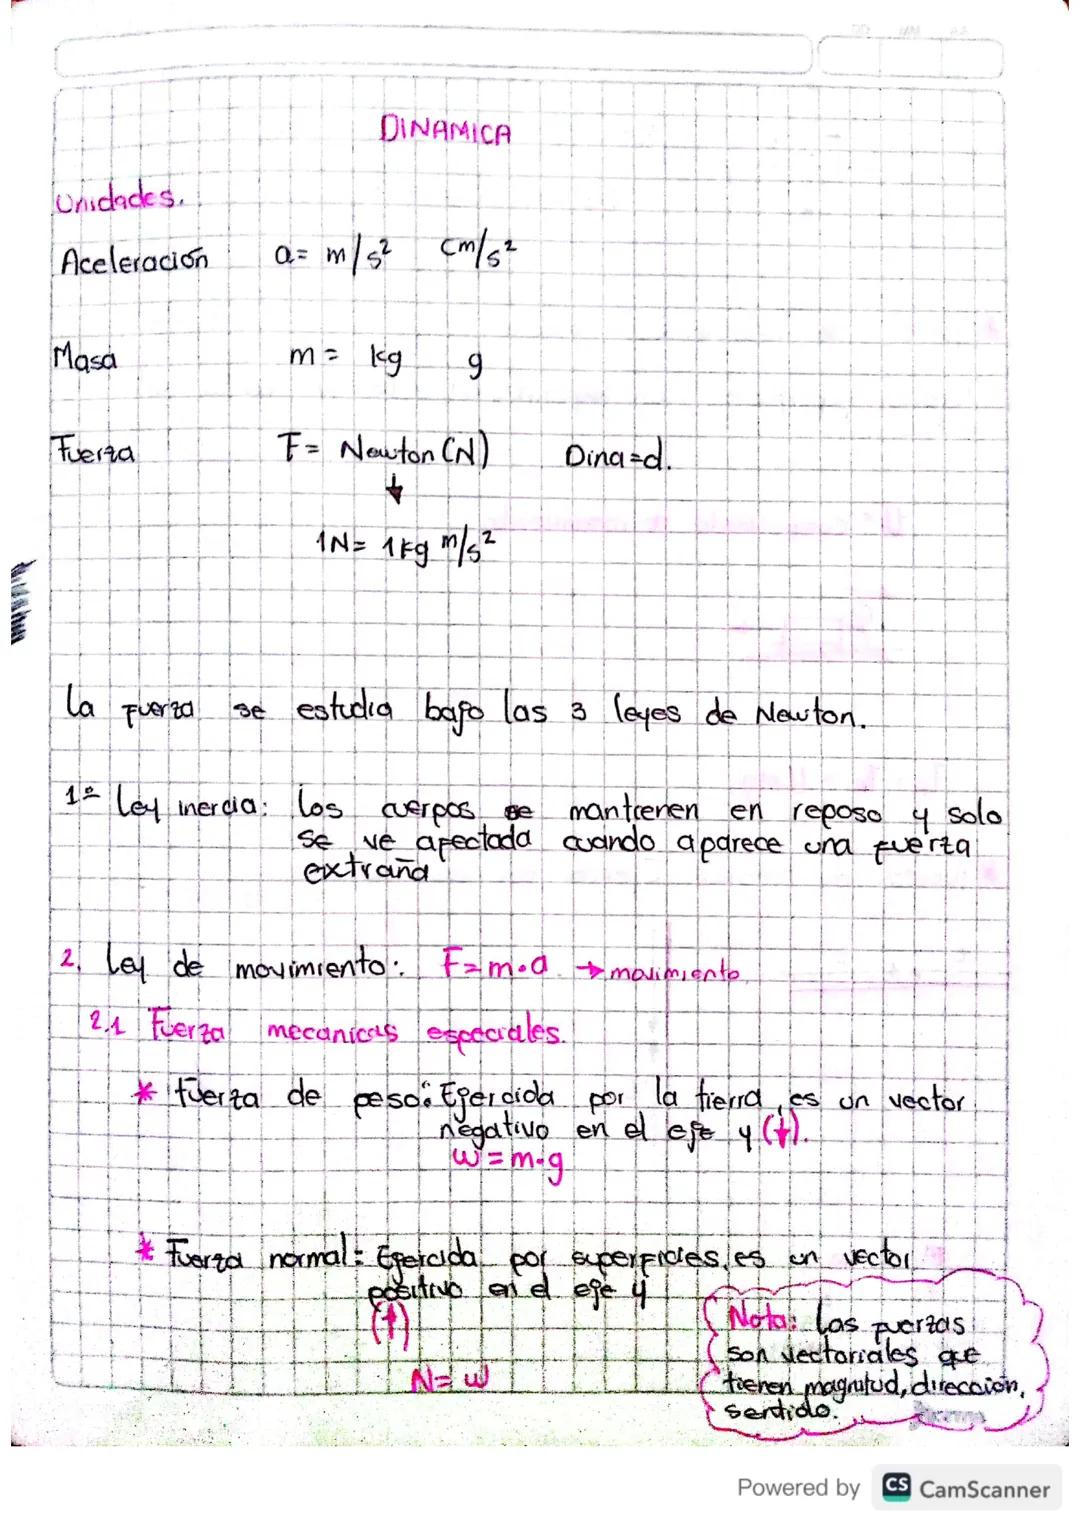 DINAMICA
Unidades.
Aceleración a= m/s² cm/s²
Masa m= kg g
Fuerza F= Newton (N) Dina=d.
↓
1N= 1kg m/s²
La fuerza se estudia bajo las 3 leyes de Newton.
1º Ley inercia: Los cuerpos se mantienen en reposo y solo
se ve afectada cuando aparece una fuerza
extraña
2. Ley de movimiento: F=m•a → movimiento
2.1 Fuerza mecánicas especiales.
* Fuerza de peso: Ejercida por la tierra, es un vector
negativo en el eje y (↓).
w=m•g
* Fuerza normal: Ejercida por superficies, es un vector
positivo en el eje y
(↑)
N= w
Nota: Las fuerzas
son vectoriales que
tienen magnitud, dirección,
sentido.
Powered by CS CamScanner